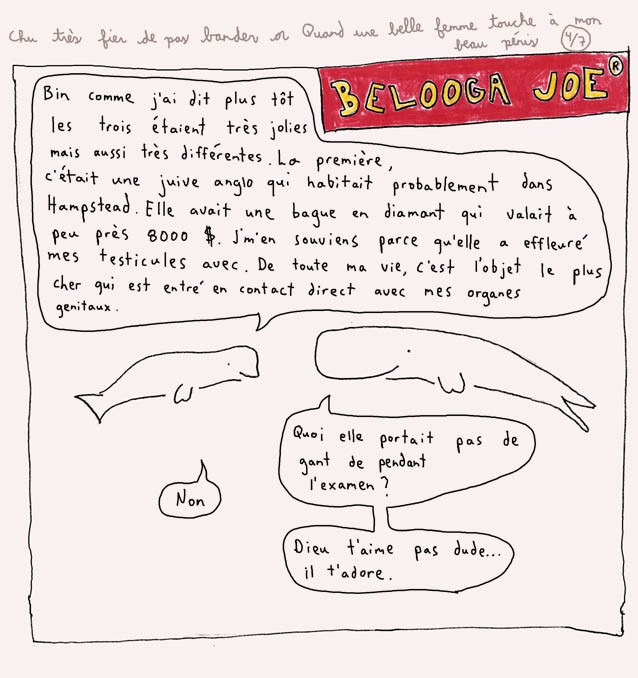 Chu très fier de pas bander or Quand une belle femme touche à mon
beau pénis 4/7
BELOOGA JOE®
Bin comme j'ai dit plus tôt
les trois étaient très jolies
mais aussi très différentes. La première,
c'était une juive anglo qui habitait probablement dans
Hampstead. Elle avait une bague en diamant qui valait à
peu près 8000 $. J'm'en souviens parce qu'elle a effleuré
mes testicules avec. De toute ma vie, c'est l'objet le plus
cher qui est entré en contact direct avec mes organes
genitaux.
Quoi elle portait pas de
gant de pendant
l'examen?
Non
Dieu t'aime pas dude...
il t'adore.